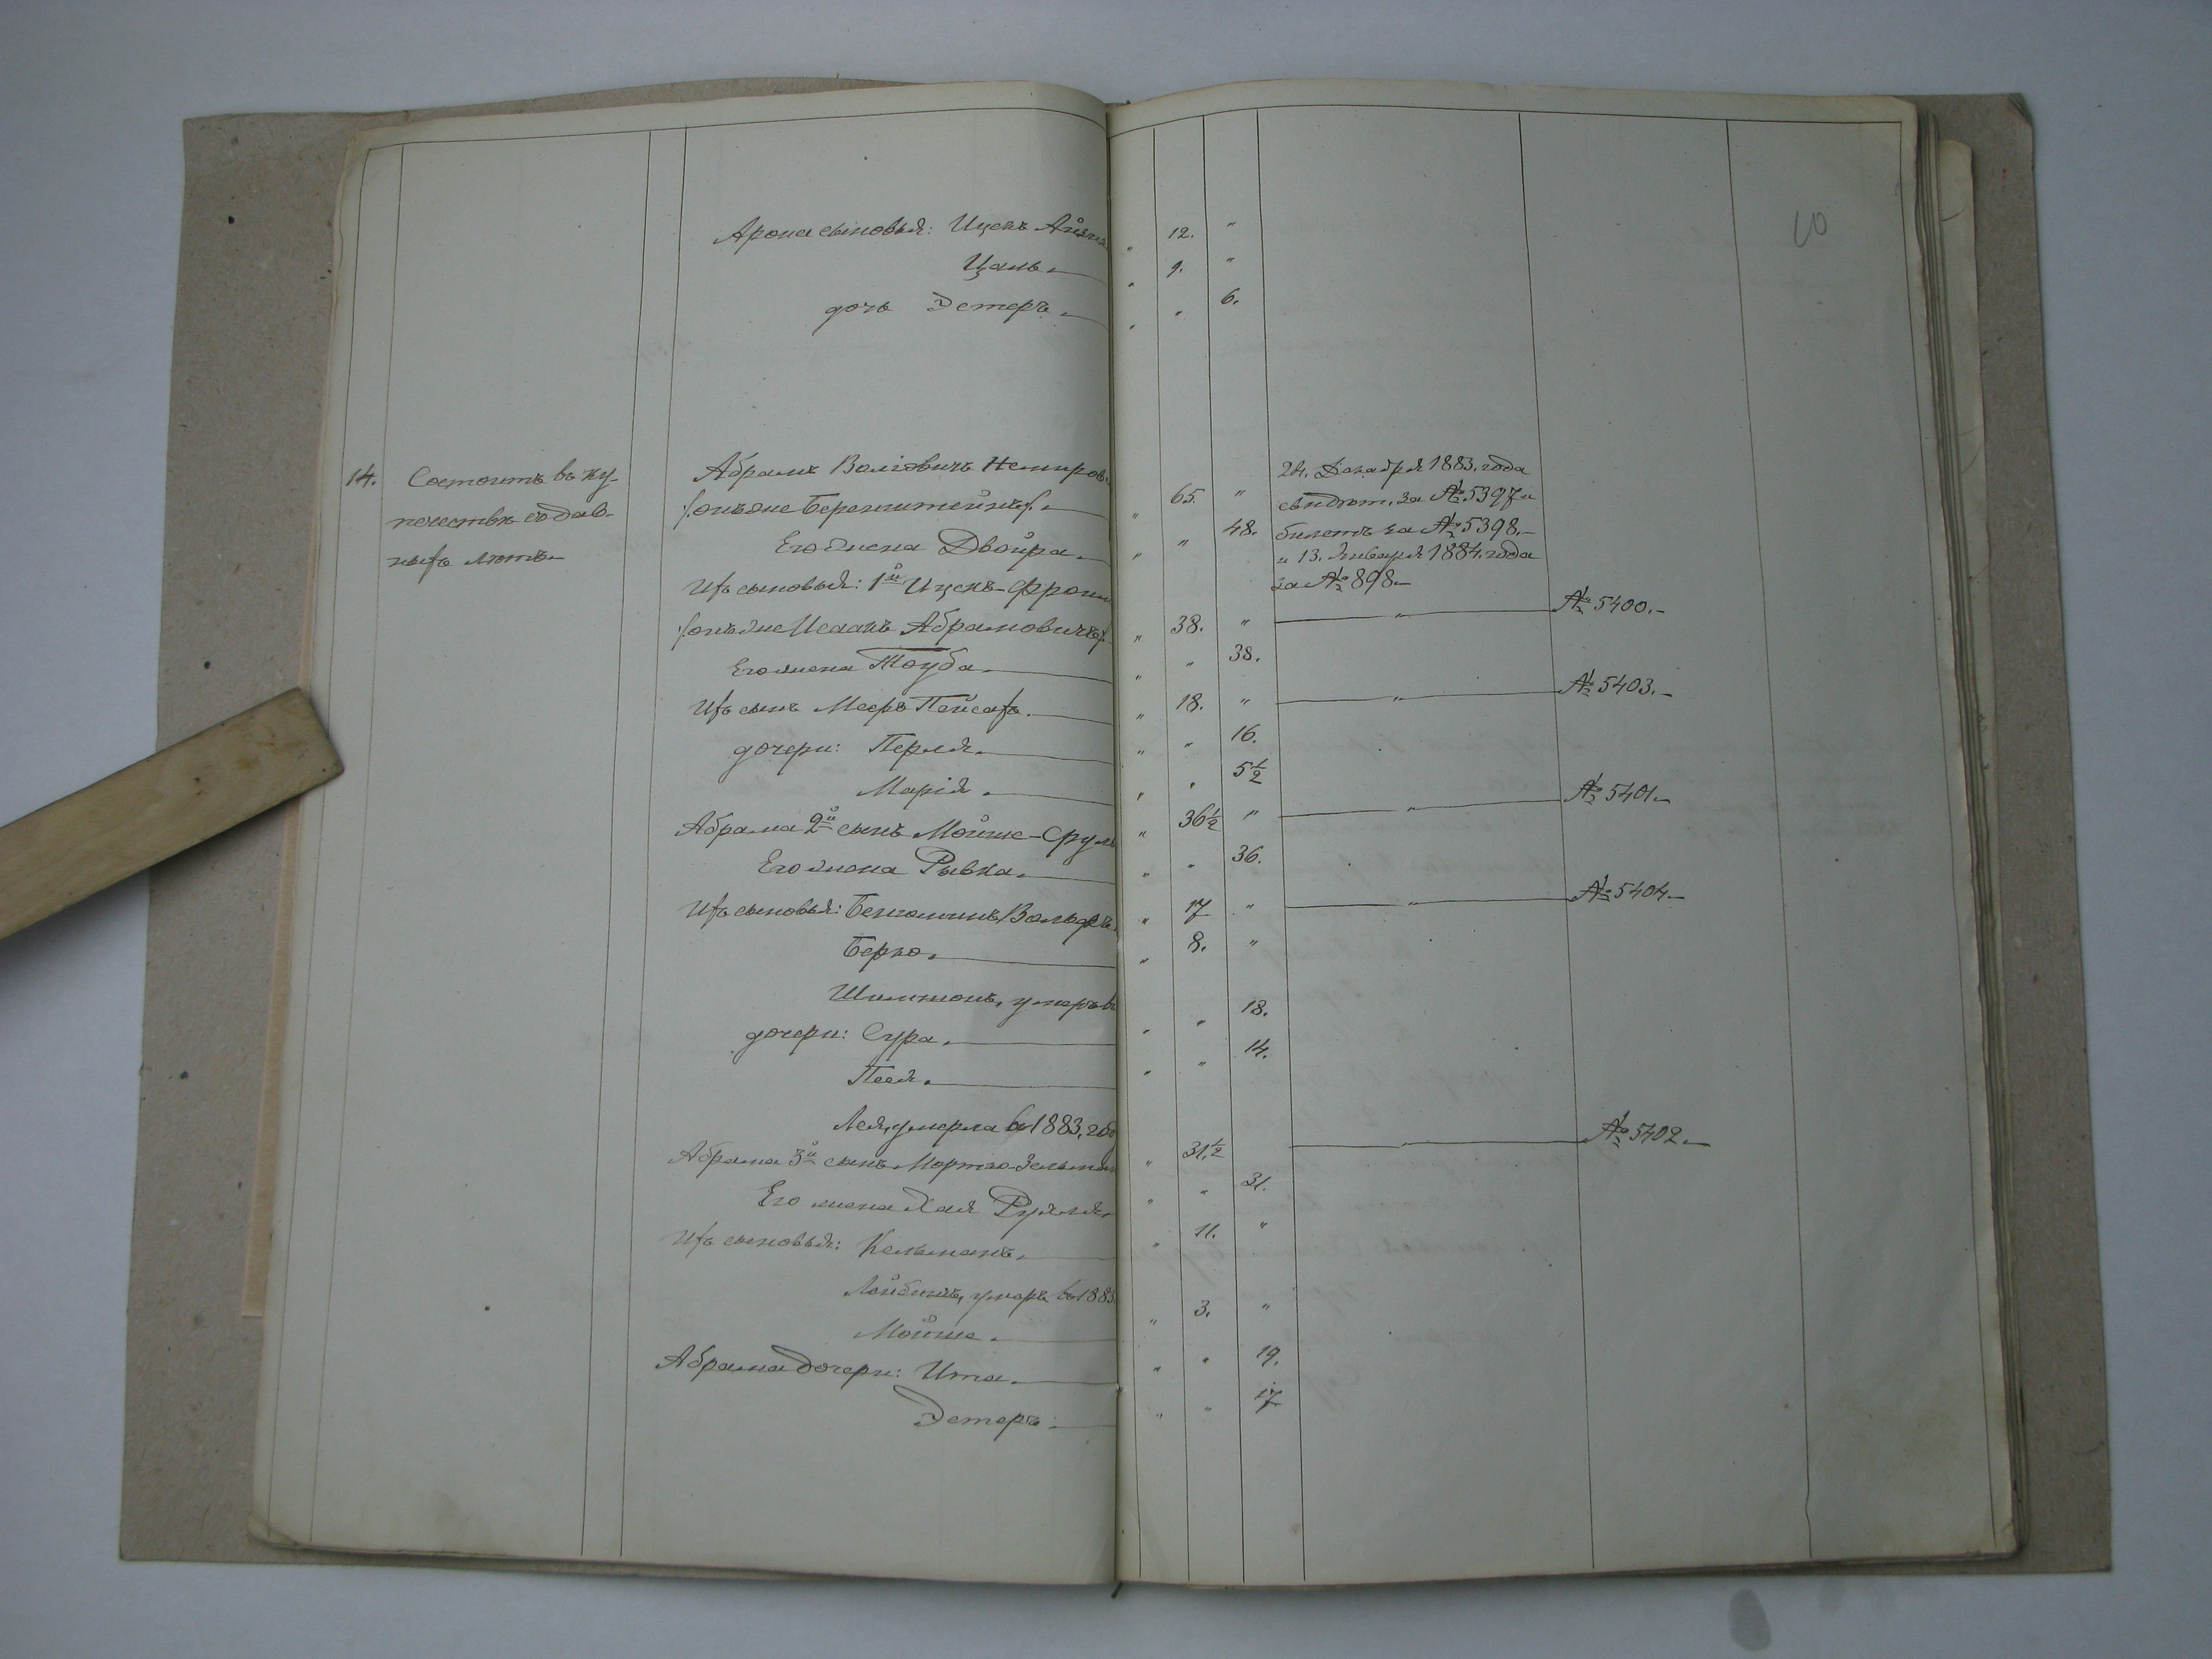 10
Арона сыновья: Ицекъ Айзикъ „ 12. „
Цаль. „ 9. „
дочь Эстеръ. „ „ 6.
14. Состоитъ въ ку- Абрамъ Волговичъ Немиров 24. Декабря 1883. года
печествѣ съ дав- /:онъ же Беренштейнъ:/. „ 65. „ свидѣт. за № 5397 и
нихъ лѣтъ Его жена Двойра. „ „ 48. билетъ за № 5398.
и 13. Января 1884. года
Ихъ сыновья: 1й Ицекъ-Фроим за № 898
/:онъ же Исаакъ Абрамовичъ:/. „ 38. „ „ № 5400.
Его жена Тоуба. „ „ 38.
Ихъ сынъ Мееръ Пейсахъ. „ 18. „ „ № 5403.
дочери: Перля. „ „ 16.
Марія. „ „ 5½
Абрама 2й сынъ Мойше-Сруль „ 36½ „ „ № 5401
Его жена Рывка. „ „ 36.
Ихъ сыновья: Беньоминъ Вольфъ. „ 17 „ № 5404
Берко. „ 8. „
Шимшонъ, умеръ въ
дочери: Сура. „ „ 18.
Песя. „ „ 14.
Лея, умерла въ 1883. год
Абрама 3й сынъ Мортко-Зельман „ 31.½ „ № 5402
Его жена Хая Рухля. „ „ 31.
Ихъ сыновья: Кельманъ. „ 11. „
Лейбишъ, умеръ въ 1883.
Мойше. „ 3. „
Абрама дочери: Ита. „ „ 19.
Эстеръ. „ „ 17